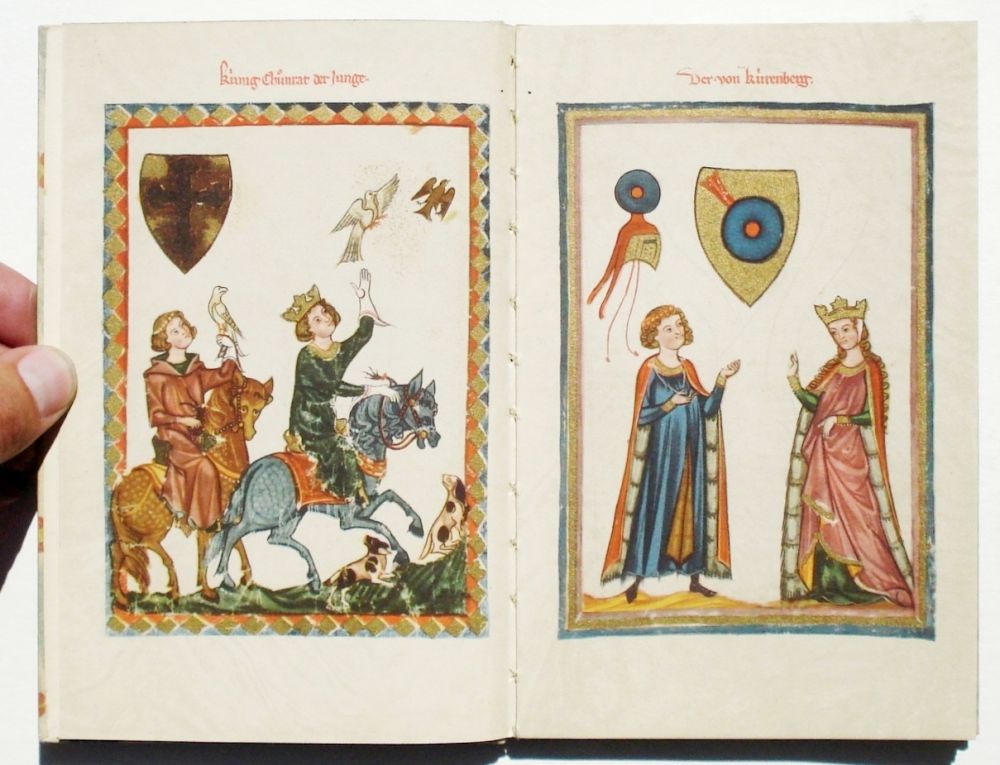 Kúnig Chůnrat der Junge.
Der von Kúrenberg.